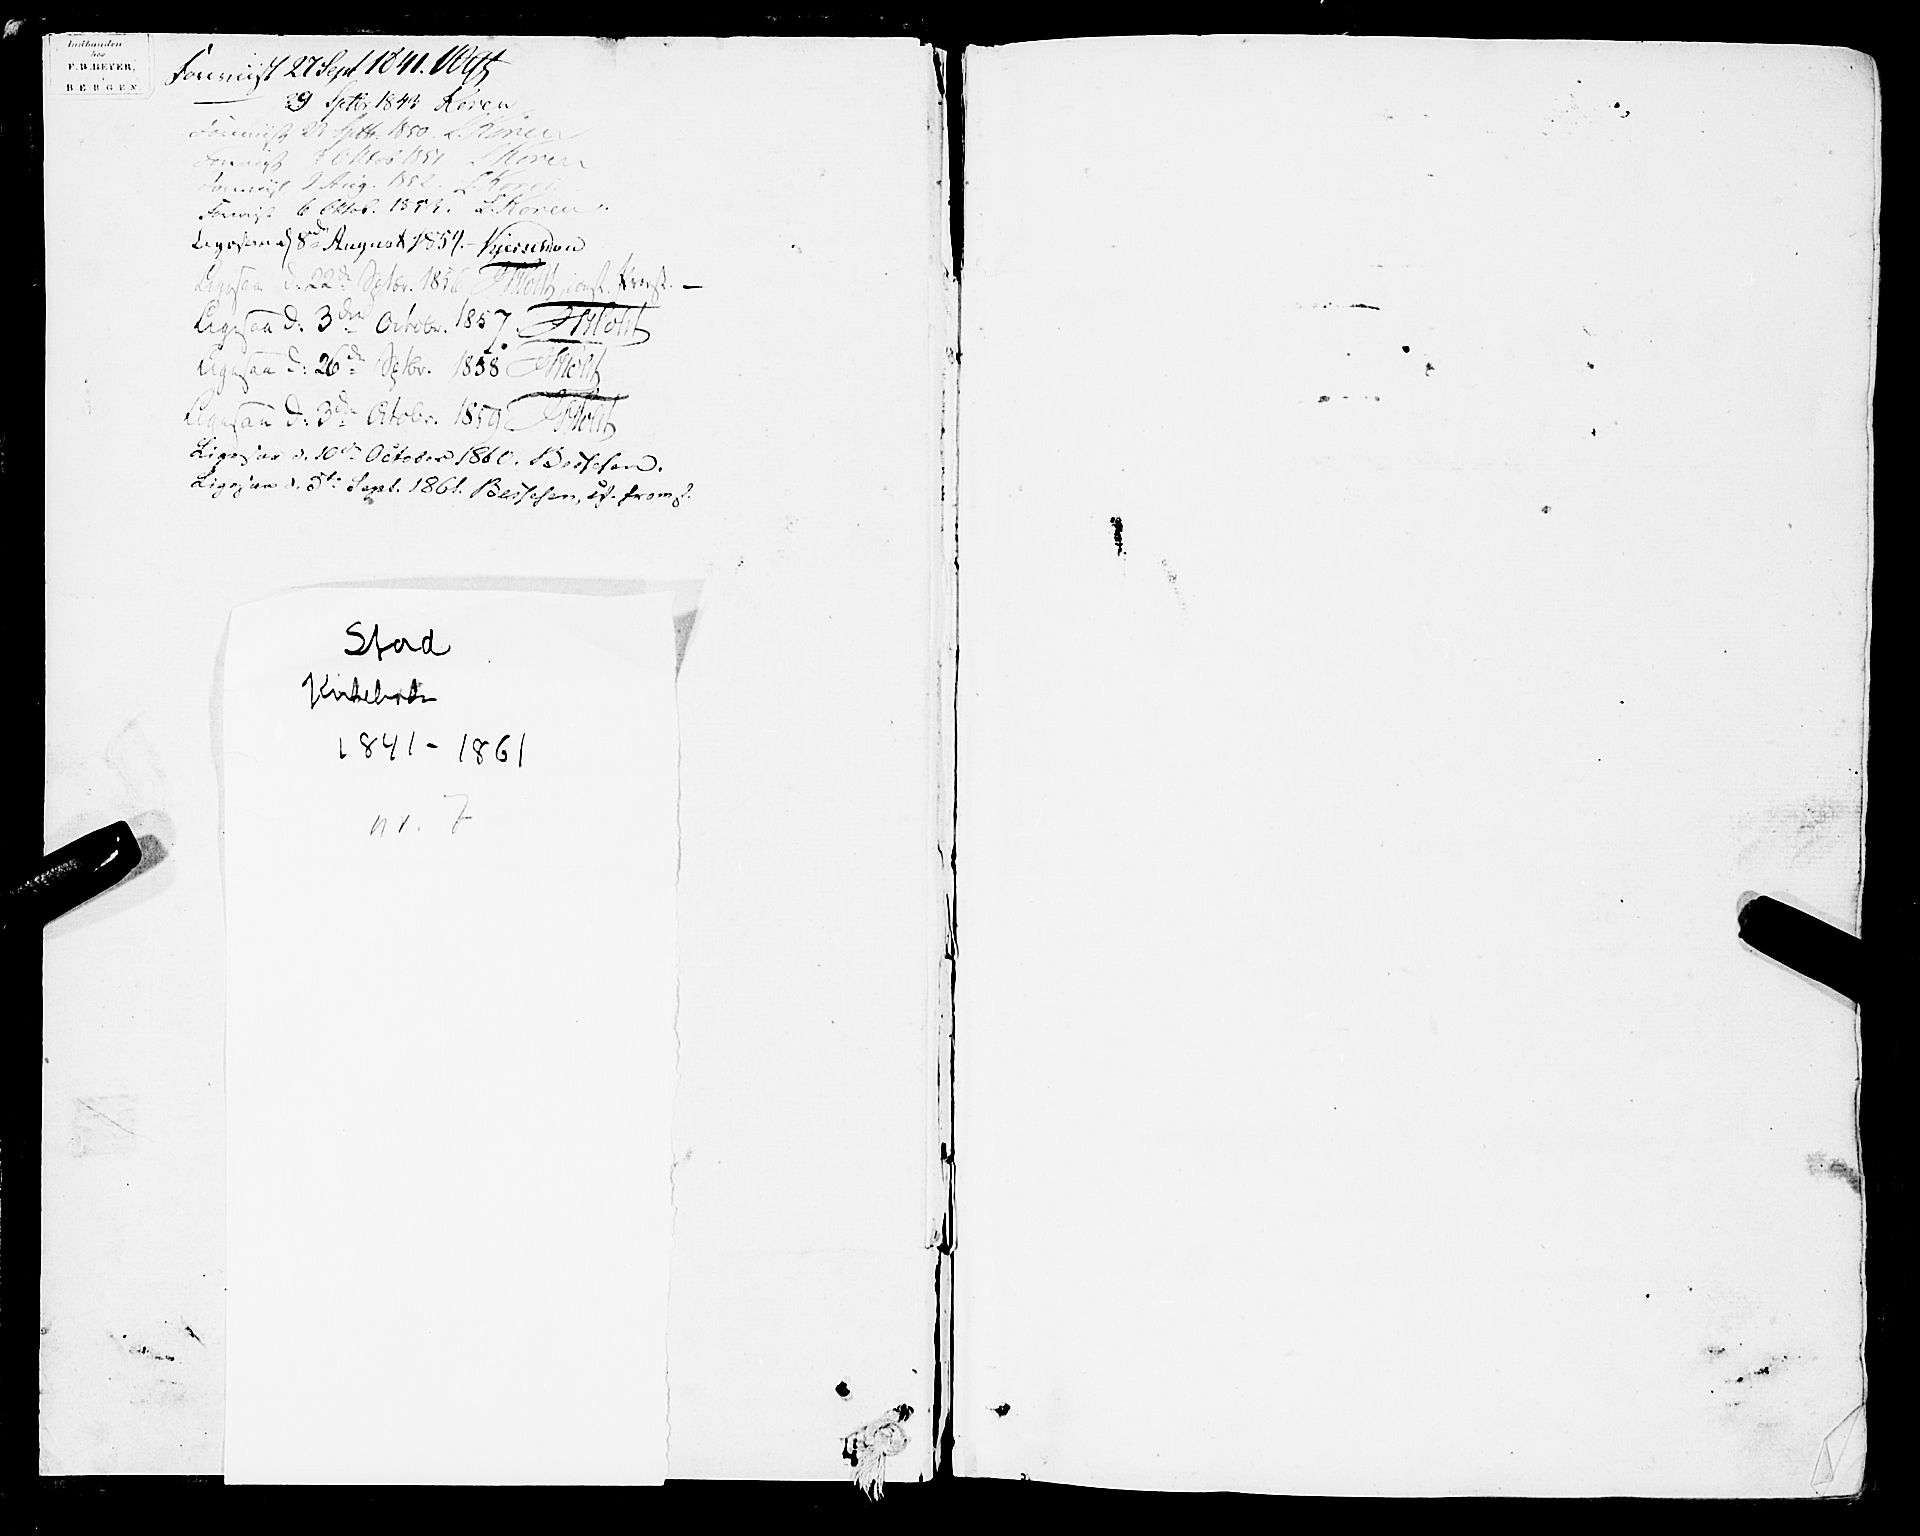 Indbunden
hos
F. D. BEYER,
i
BERGEN.
Foreviist 27 Sept 1841. Vogt
29 Septbr 1843 Koren
Foreviist 27 Septb. 1850. L. Koren
Foreviist 8 Oktob 1851 L. Koren
Foreviist 9 Aug. 1852. L. Koren
Foreviist 6 Oktob. 1853. L. Koren.
Ligesaa d 8de August 1854. Kjerschow
Ligesaa d. 22de Septbr. 1856 Holtz, const. Provst. -
Ligesaa d: 3die Octobr. 1857. Holtz
Ligesaa d: 26de Septbr. 1858 Holtz
Ligesaa d: 3die Octobr. 1859 Holtz
Ligesaa d. 10de October 1860.
Ligesaa d. 5te Sept. 1861.
Stord
Kirkebok
1841 - 1861
nr. 7